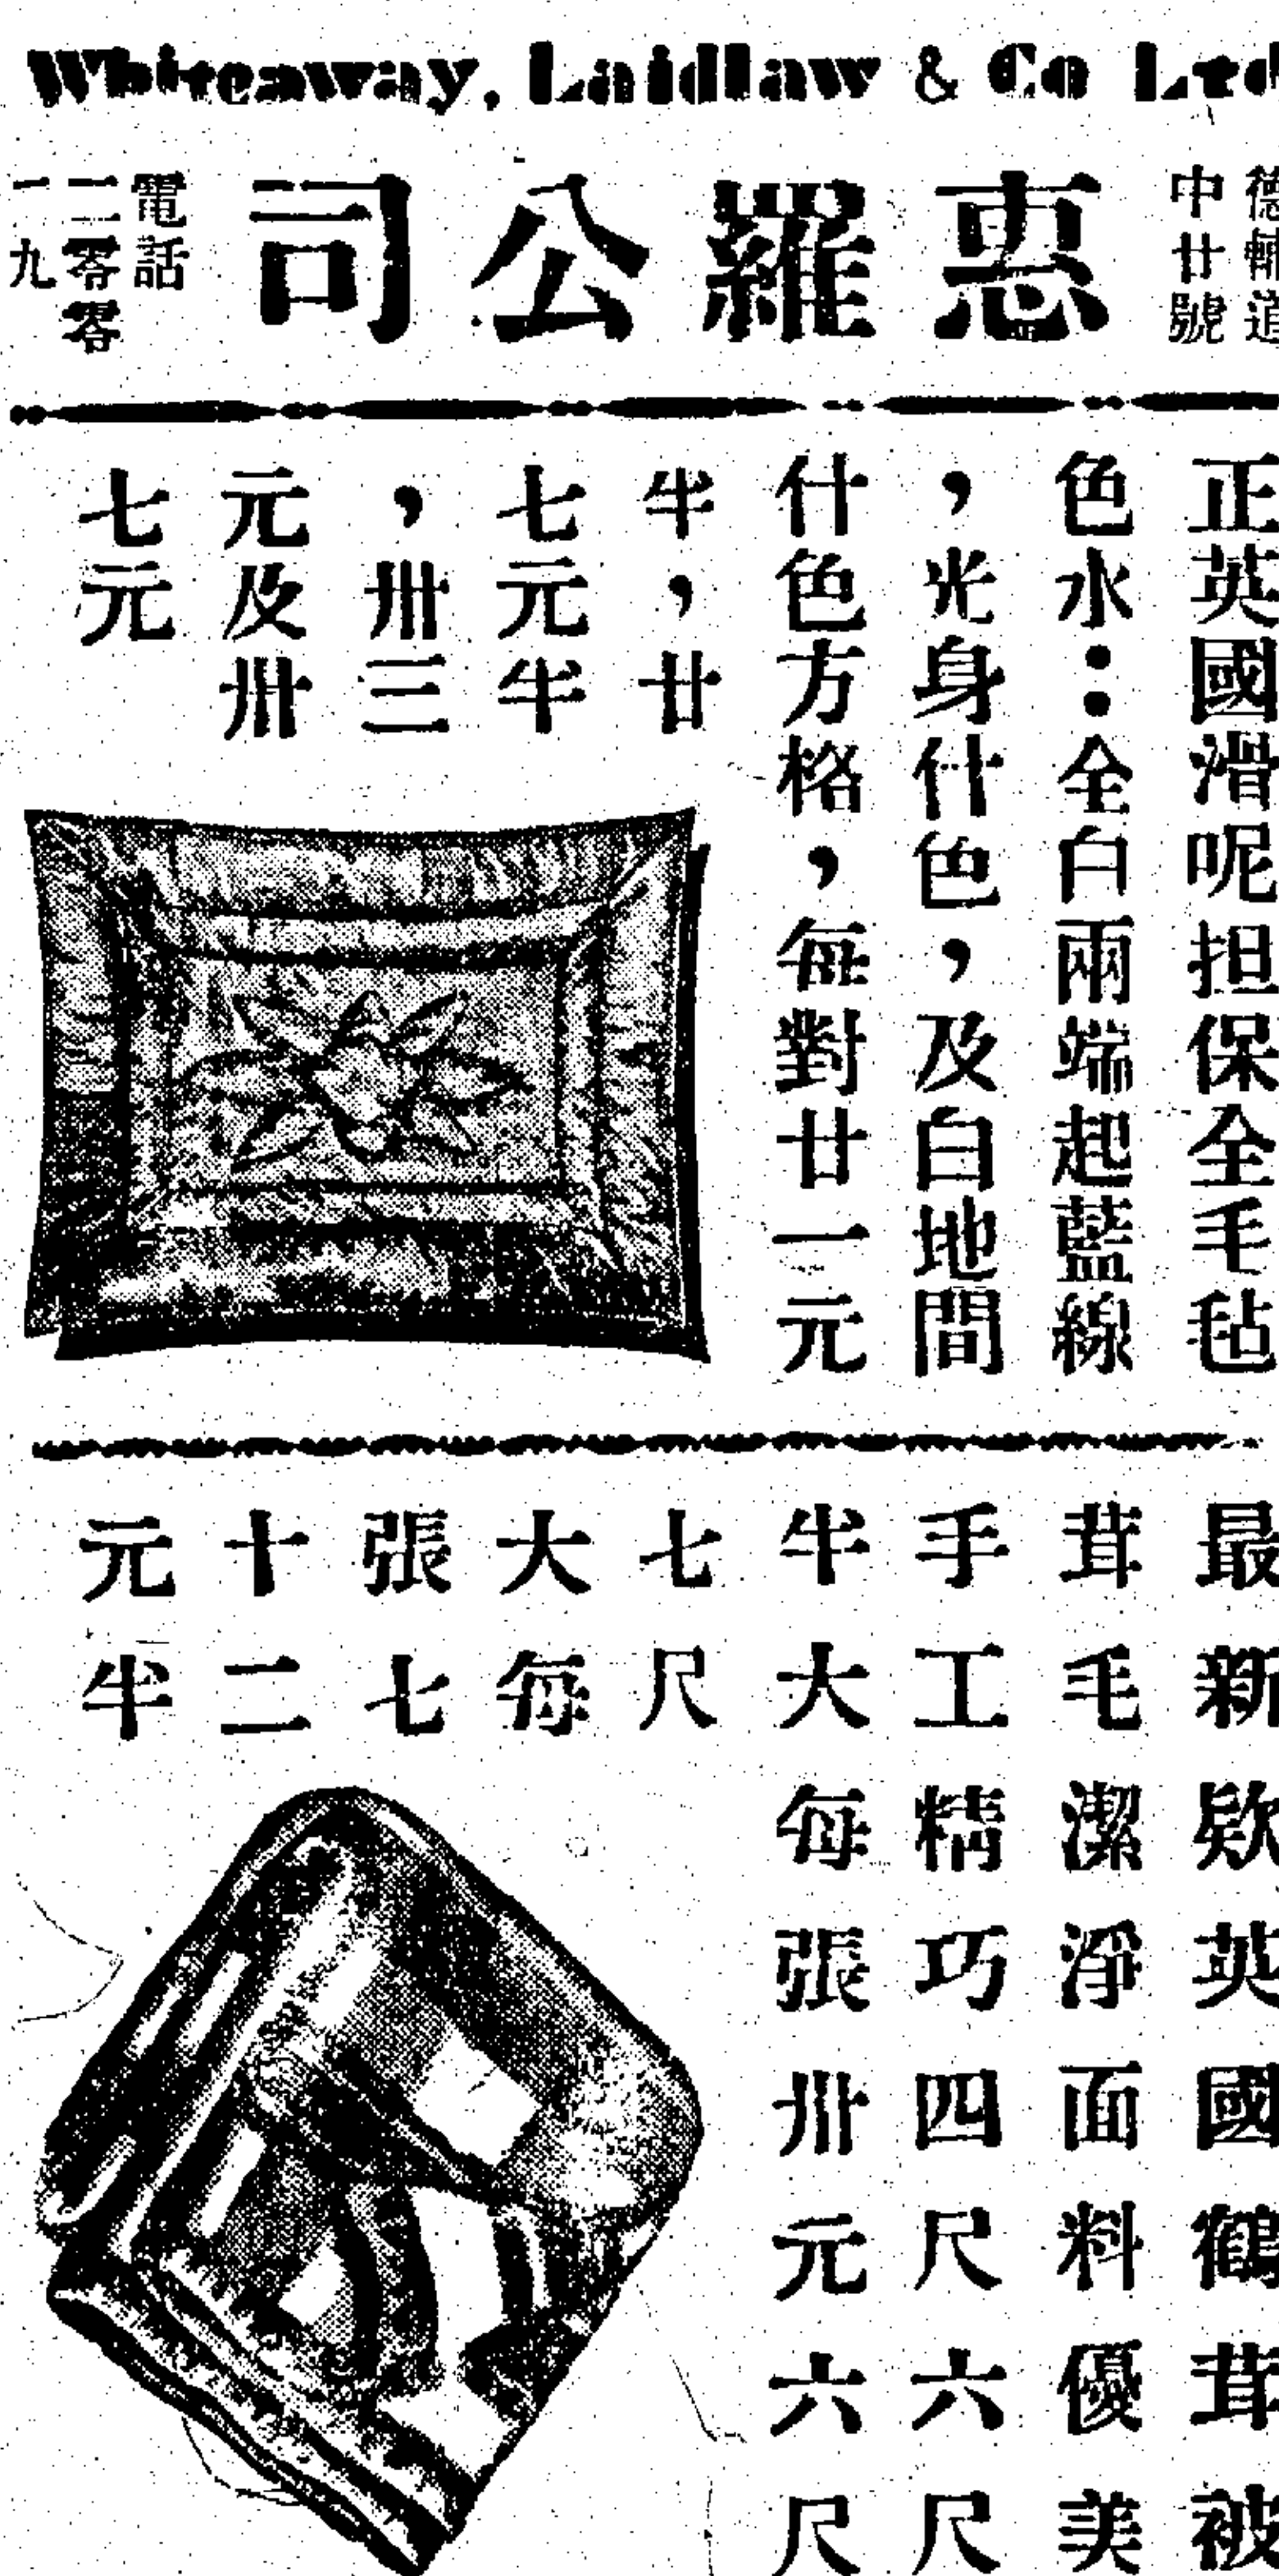 Whiteaway, Laidlaw & Co Ltd
德輔道
中廿號
惠羅公司
電話
二零零
一九
正英國滑呢担保全毛毡
色水：全白兩端起藍線
，光身什色，及白地間
什色方格，每對廿一元
半，廿
七元半
，卅三
元及卅
七元
最新欵英國鶴茸被
茸毛潔淨面料優美
手工精巧四尺六尺
半大每張卅元六尺
七尺
大每
張七
十二
元半